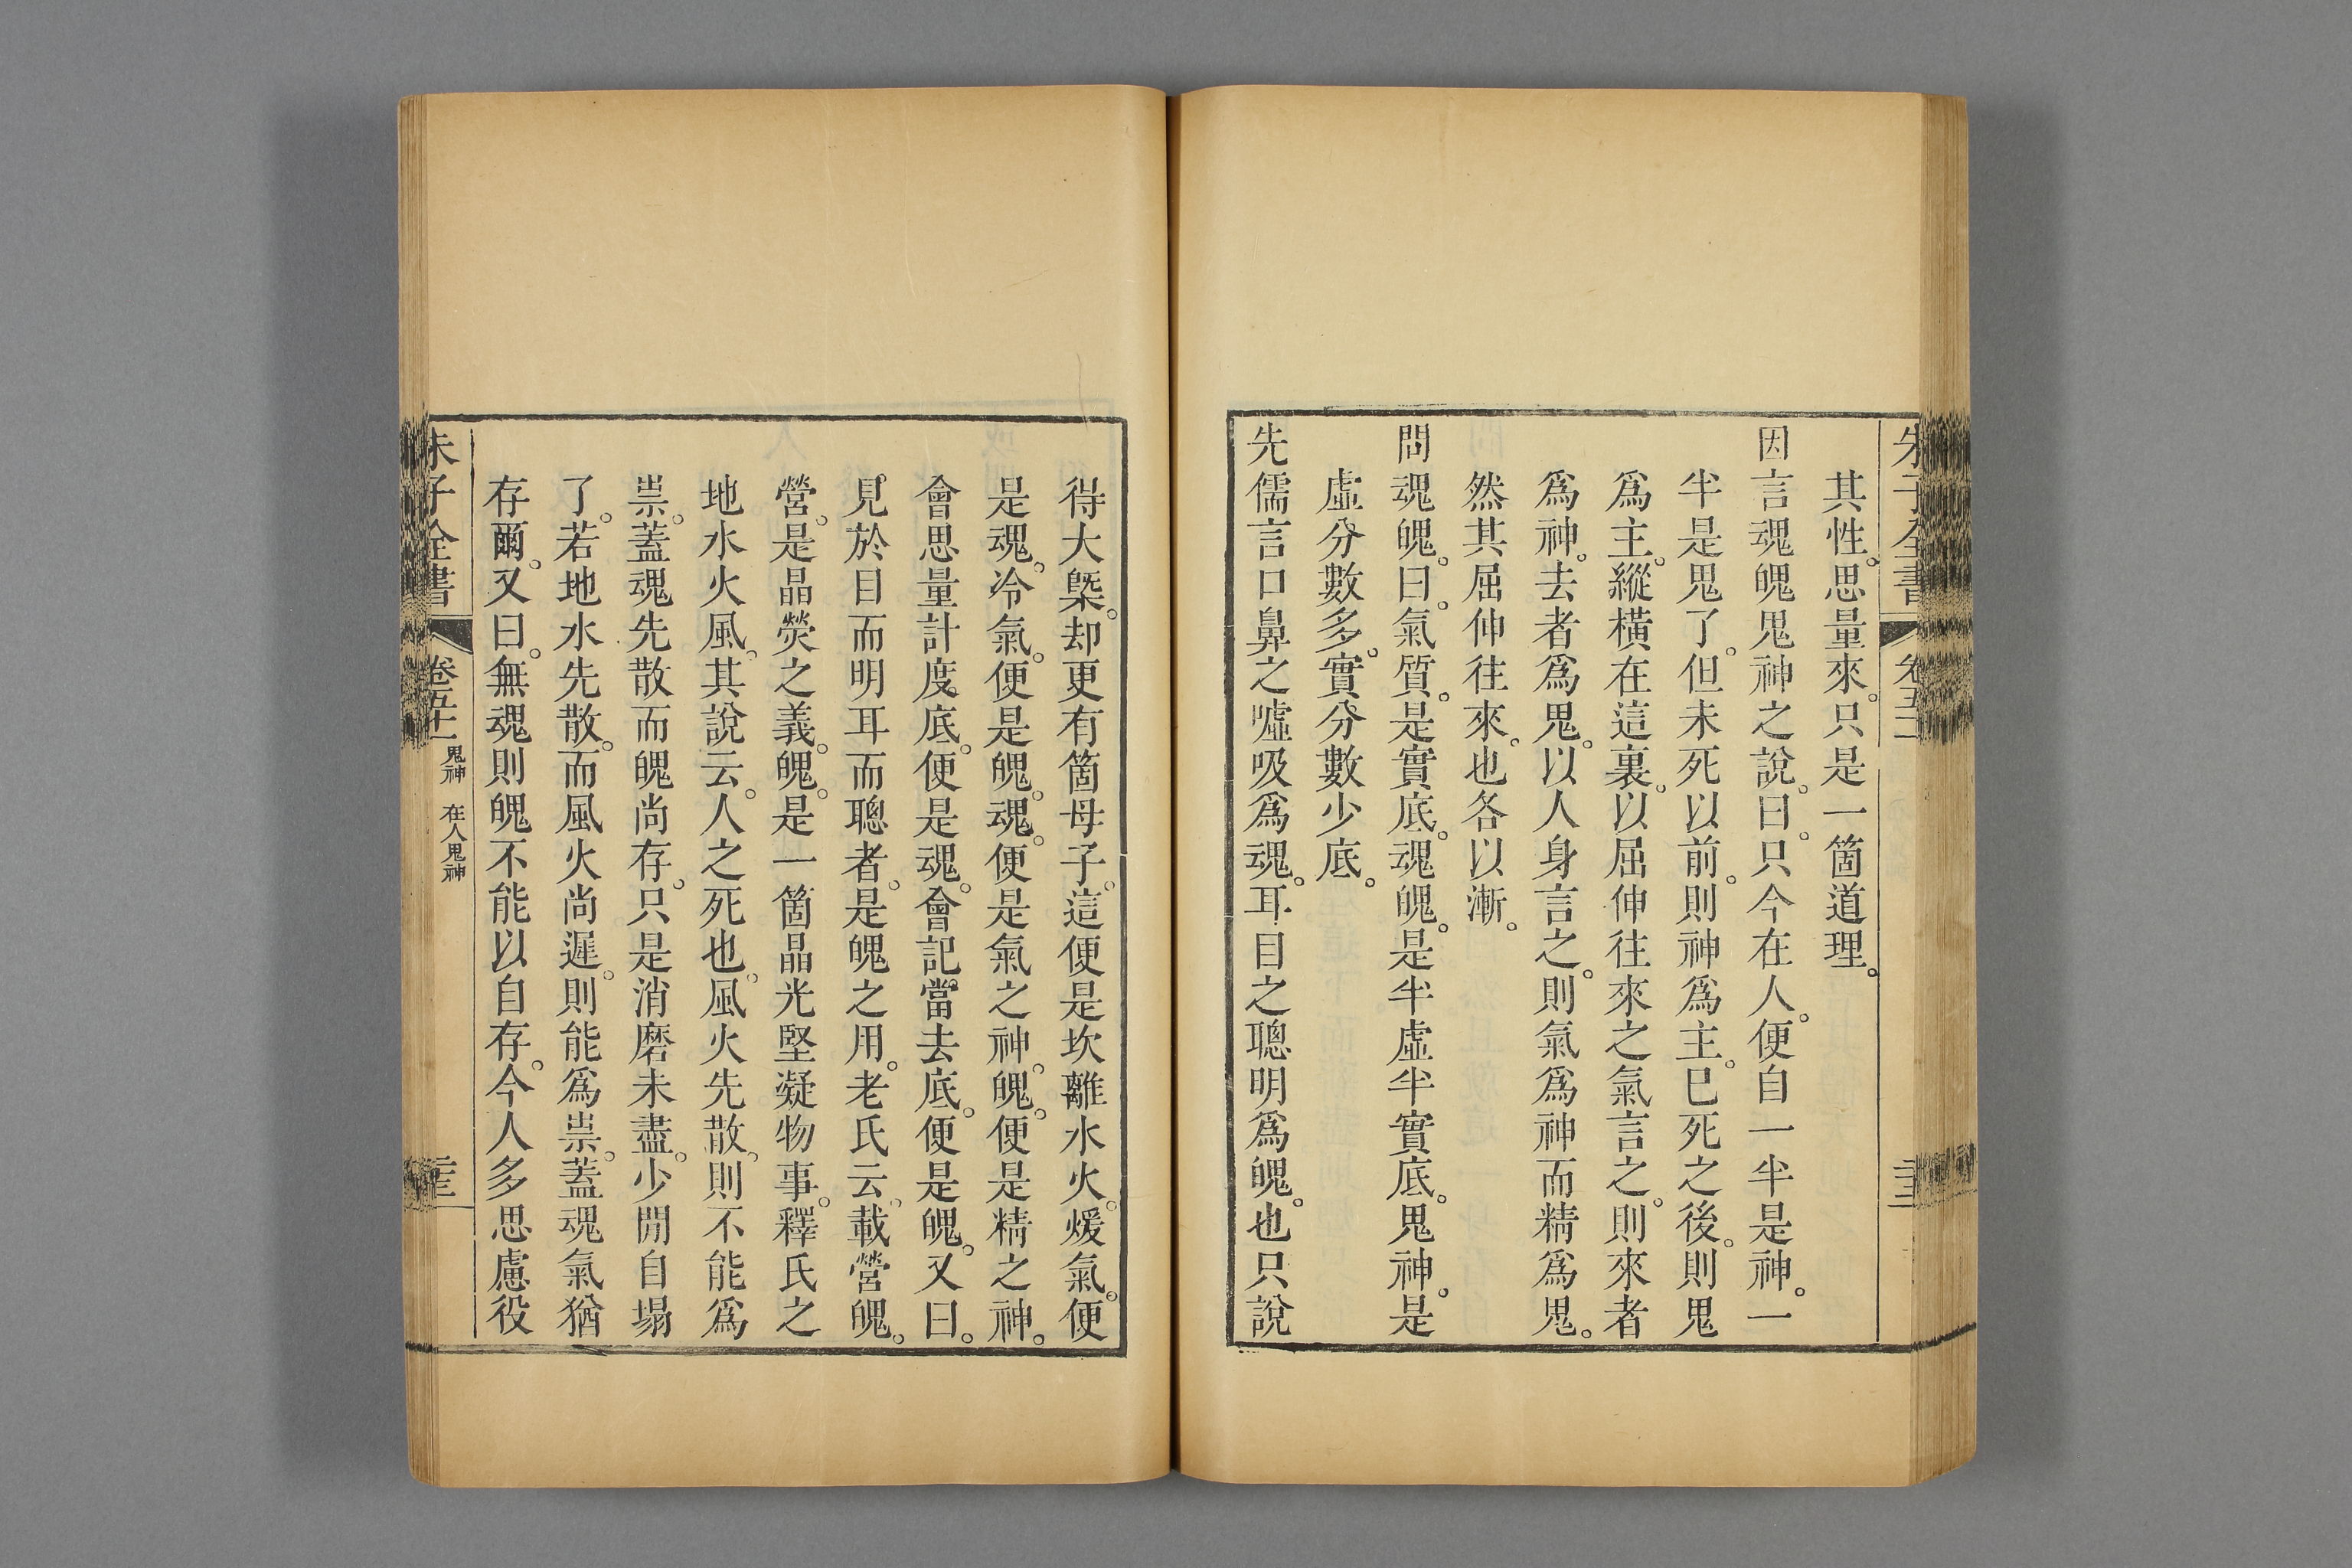 其性。思量來。只是一箇道理。
因言魂魄鬼神之說。曰。只今在人。便自一半是神。一
半是鬼了。但未死以前。則神爲主。已死之後。則鬼
爲主。縱橫在這裏。以屈伸往來之氣言之。則來者
爲神。去者爲鬼。以人身言之。則氣爲神而精爲鬼。
然其屈伸往來。也各以漸。
問魂魄。曰。氣質。是實底。魂魄。是半虛半實底。鬼神。是
虛分數多。實分數少底。
先儒言口鼻之噓吸爲魂。耳目之聰明爲魄。也只說
得大槩。却更有箇母子。這便是坎離水火。煖氣。便
是魂。冷氣。便是魄。魂。便是氣之神。魄。便是精之神。
會思量計度。底。便是魂。會記。當去底。便是魄。又曰。
見於目而明耳而聰者。是魄之用。老氏云。載營魄。
營。是晶熒之義。魄。是一箇晶光堅凝物事。釋氏之
地水火風。其說云。人之死也。風火先散。則不能爲
祟。蓋魂先散而魄尚存。只是消磨未盡。少閒自塌
了。若地水先散。而風火尚遲。則能爲祟。蓋魂氣猶
存爾。又曰。無魂則魄不能以自存。今人多思慮役
朱子全書
卷五十一
鬼神 在人鬼神